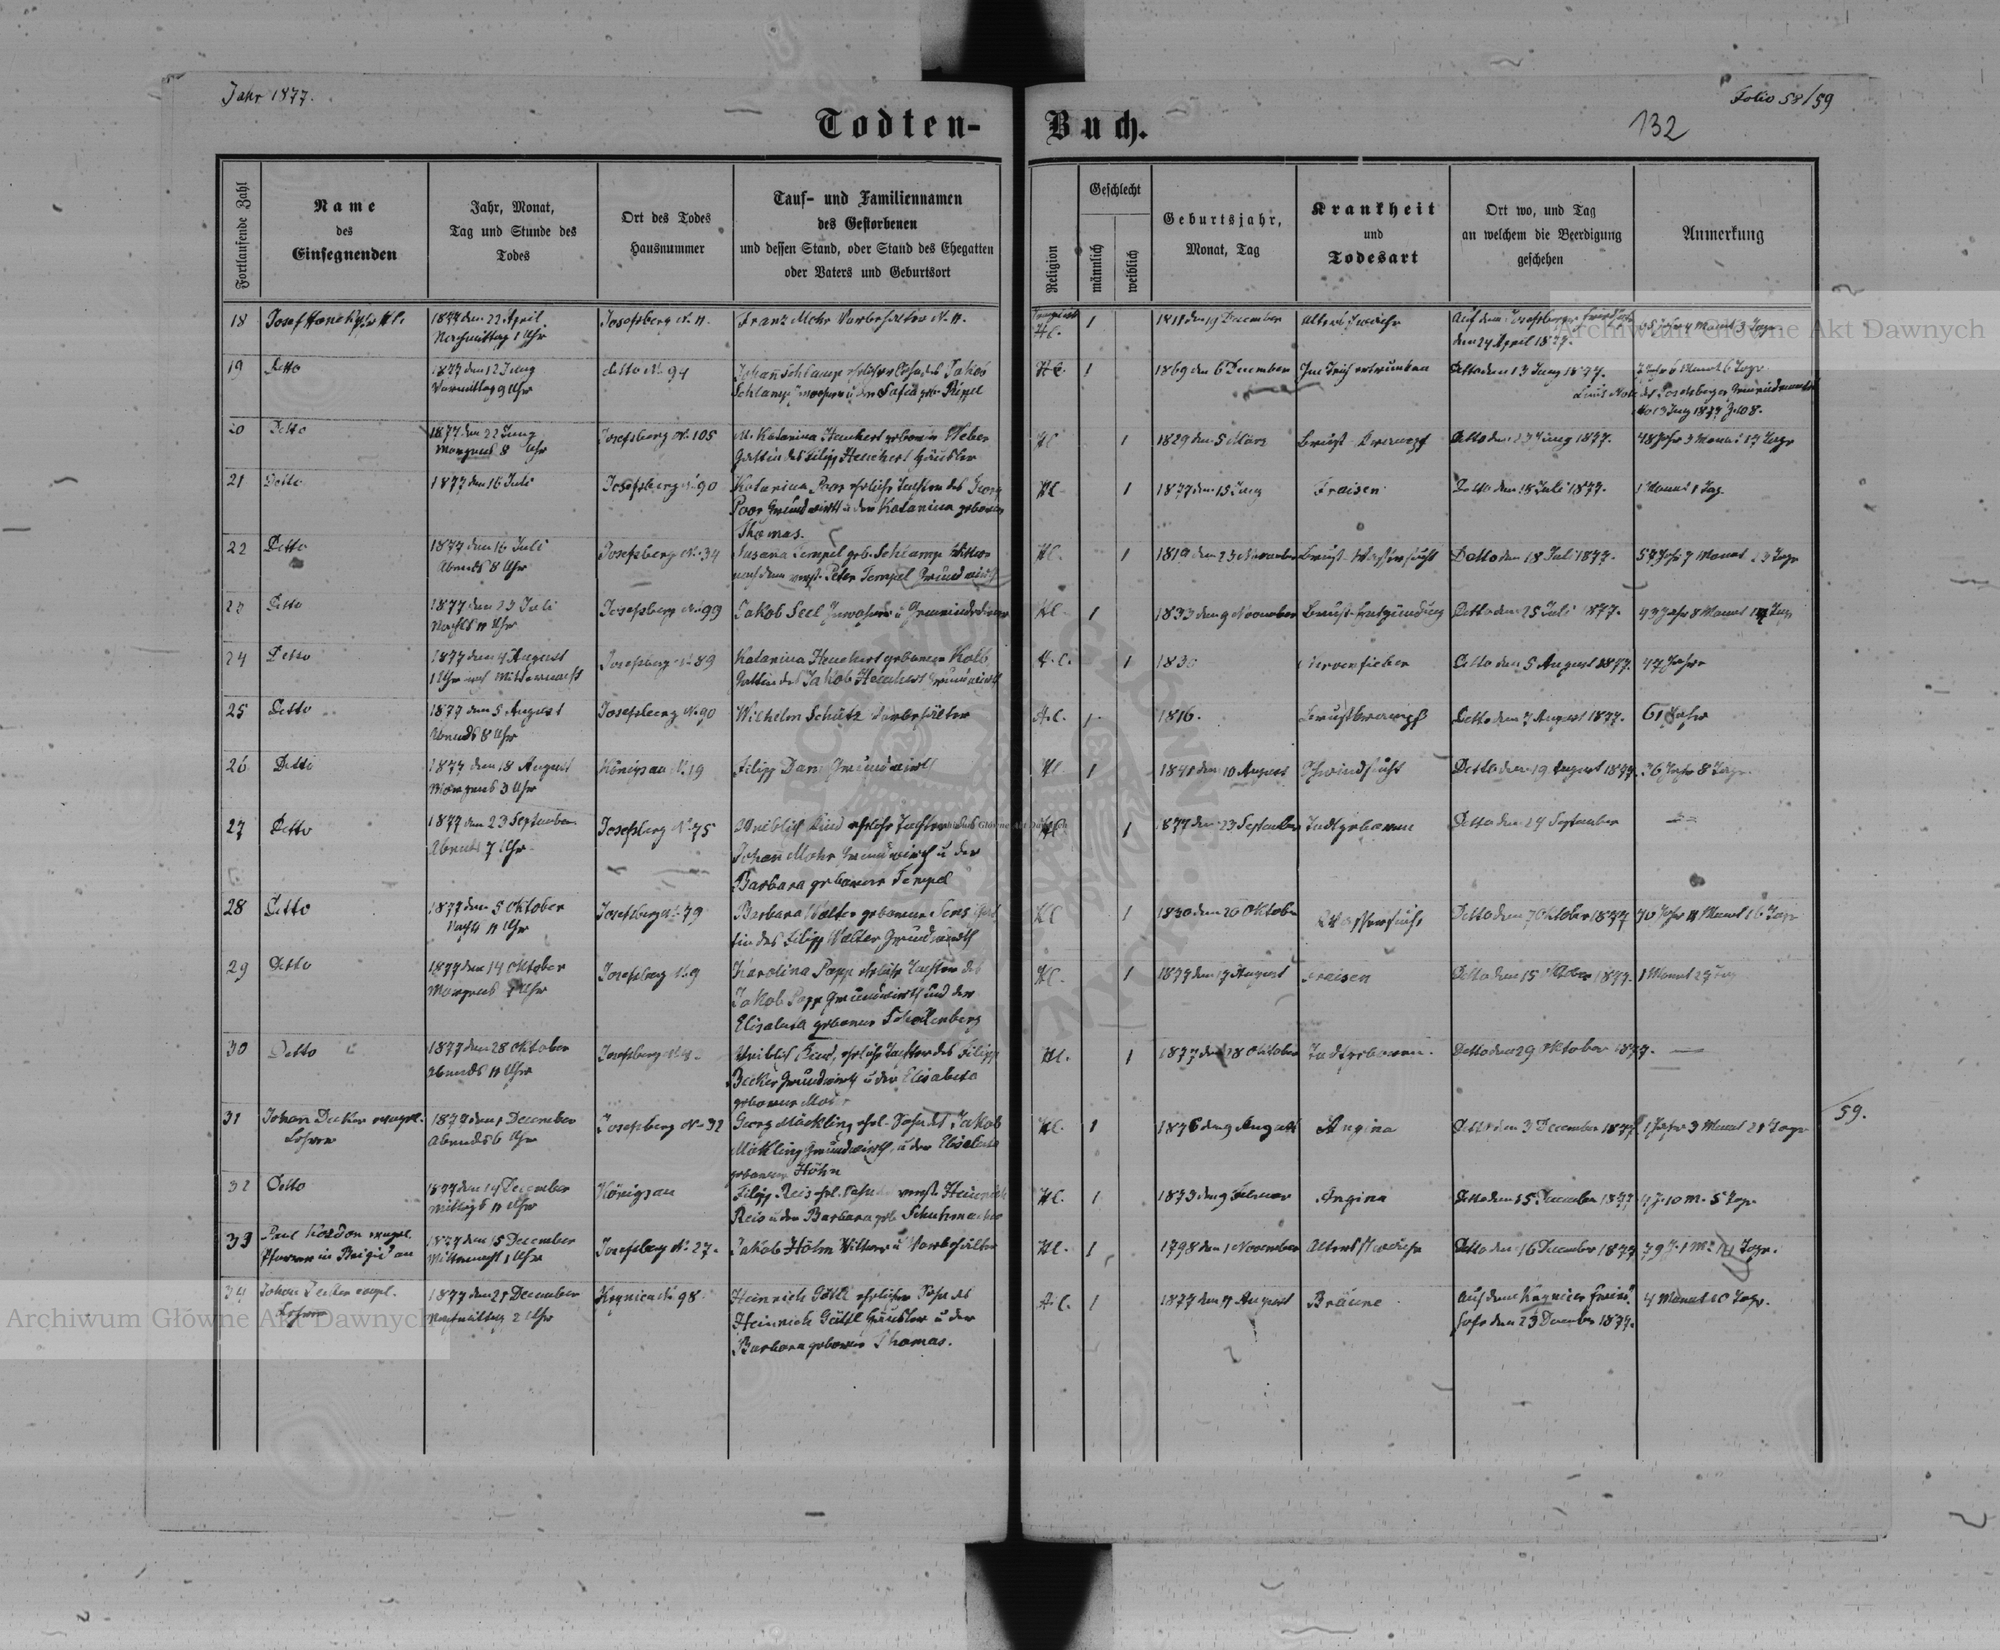 Jahr 1877.
Folio 58/59
132
Todten-Buch.
Fortlaufende Zahl
Name
des
Einsegnenden
Jahr, Monat,
Tag und Stunde des
Todes
Ort des Todes
Hausnummer
Tauf- und Familiennamen
des Gestorbenen
und dessen Stand, oder Stand des Ehegatten
oder Vaters und Geburtsort
Religion
Geschlecht
männlich
weiblich
Geburtsjahr,
Monat, Tag
Krankheit
und
Todesart
Ort wo, und Tag
an welchem die Beerdigung
geschehen
Anmerkung
18 Josef 1877 den 22 April Josefsberg N. 11. Franz Mohr Vorbehalter N. 11. H.C. 1 1811 den 19 December Altersschwäche Auf dem Josefsberger
Nachmittag 1 Uhr den 24 April 1877.
19 Detto 1877 den 12 Juny detto N. 94 Johann Schlamp ehelicher Sohn des Jakob H.C. 1 1869 den 6 December Im Teich ertrunken Detto den 13 Juny 1877. 7 Jahr 6 Monat 6 Tage
Vormittag 9 Uhr Schlamp geb. Rippel Laut Note des Josefsberger Gemeindeamtes
13 Juny 1877 Z. 108.
20 Detto 1877 den 22 Juny Josefsberg N. 105 Katarina Heuchert geborene Weber HC 1 1829 den 5 März Brust Krampf Detto den 23 Juny 1877. 48 Jahr 3 Monat 17 Tage
Morgens 8 Uhr Gattin des Filipp Heuchert Häusler
21 Detto 1877 den 16 Juli Josefsberg N. 90 Katarina Poor eheliche Tochter des Georg HC 1 1877 den 15 Juny Fraisen Detto den 18 Juli 1877. 1 Monat 1 Tag
Poor Grundwirth u. der Katarina geborene
Thomas.
22 Detto 1877 den 16 Juli Josefsberg N. 34 Susana Tempel geb. Schlamp Witwe HC. 1 1819 den 23 November Brust Wassersucht Detto den 18 Juli 1877. 57 Jahr 7 Monat 23 Tage
Abends 8 Uhr nach dem verst. Peter Tempel Grundwirth
23 Detto 1877 den 23 Juli Josefsberg N. 99 Jakob Seel Inwohner u. Gemeindediener HC 1 1833 den 9 November Brust Entzündung Detto den 25 Juli 1877. 43 Jahr 8 Monat
Nachts 11 Uhr
24 Detto 1877 den 4 August Josefsberg N. 89 Katarina Heuchert geborene Kolb H.C. 1 1830 Nervenfieber Detto den 5 August 1877. 47 Jahr
1 Uhr nach Mitternacht Gattin des Jakob Heuchert Grundwirth
25 Detto 1877 den 5 August Josefsberg N. 90 Wilhelm Schütz Vorbehälter H.C. 1 1816. Brustkrampf Detto den 7 August 1877. 61 Jahr
Abends 8 Uhr
26 Detto 1877 den 18 August Königsau N. 19 Filipp Dam Grundwirth HC 1 1841 den 10 August Schwindsucht Detto den 19 August 1877. 36 Jahr 8 Tage
Morgens 3 Uhr
27 Detto 1877 den 23 September Josefsberg N. 75 Weiblich Kind eheliche Tochter des HC 1 1877 den 23 September Todtgeboren Detto den 24 September
Abends 7 Uhr Johann Mohr Grundwirth u. der
Barbara geborene Tempel
28 Detto 1877 den 5 Oktober Josefsberg N. 79 Barbara Walter geborene HC 1 1830 den 20 Oktober Wassersucht Detto den 7 Oktober 1877 Jahr 11 Monat 16 Tage
Nachts 11 Uhr tin des Filipp Walter Grundwirth
29 Detto 1877 den 14 Oktober Josefsberg N. 9 Karolina Popp eheliche Tochter des HC. 1 1877 den 17 August Fraisen Detto den 15 Oktober 1877. 1 Monat 27 Tag
Morgens Uhr Jakob Popp Grundwirth und der
Elisabeta geborene Schallenberg
30 Detto 1877 den 28 Oktober Josefsberg Weiblich Kind, eheliche Tochter des Filipp HC. 1 1877 den 28 Oktober Todtgeboren. Detto den 29 Oktober 1877.
Abends 11 Uhr Becker Grundwirth u. der Elisabeta
geborene
31 Johan Decker evangl. 1877 den 1 December Josefsberg N. 32 Georg Möckling ehel. Sohn des Jakob HC. 1 1876 den 9 August Angina Detto den 3 December 1877 1 Jahr 3 Monat 21 Tage 59.
Lehrer Abends 6 Uhr Möckling Grundwirth, u. der Elisabeta
geborene Höhn
32 Detto 1877 den 14 December Königsau Filipp Reis ehel. Sohn des verst. Heinrich HC. 1 1873 den 9 Februar Angina Detto den 15 December 1877 4 J. 10 M. 5 Tage
Mittags 11 Uhr Reis u. der Barbara geb. Schuhmacher
33 Paul Kordon evangl. 1877 den 15 December Josefsberg N. 27. Jakob Höhn Witwer u. Vorbehälter HC. 1 1798 den 1 November Altersschwäche Detto den 16 December 1877 79 J. 1 M. 14 Tage.
Pfarrer in Brigidau Mitternacht 1 Uhr
34 Johan Decker evangl. 1877 den 21 December Krynica N. 98 Heinrich Göttl ehelicher Sohn des H.C. 1 1877 den 11 August Bräune Auf dem Krynicer Fried 4 Monat 10 Tage.
Lehrer Nachmittag 2 Uhr Heinrich Göttl Häusler u. der hofe den 23 December 1877.
Barbara geborene Thomas.
Archiwum Główne Akt Dawnych
Archiwum Główne Akt Dawnych
Archiwum Główne Akt Dawnych